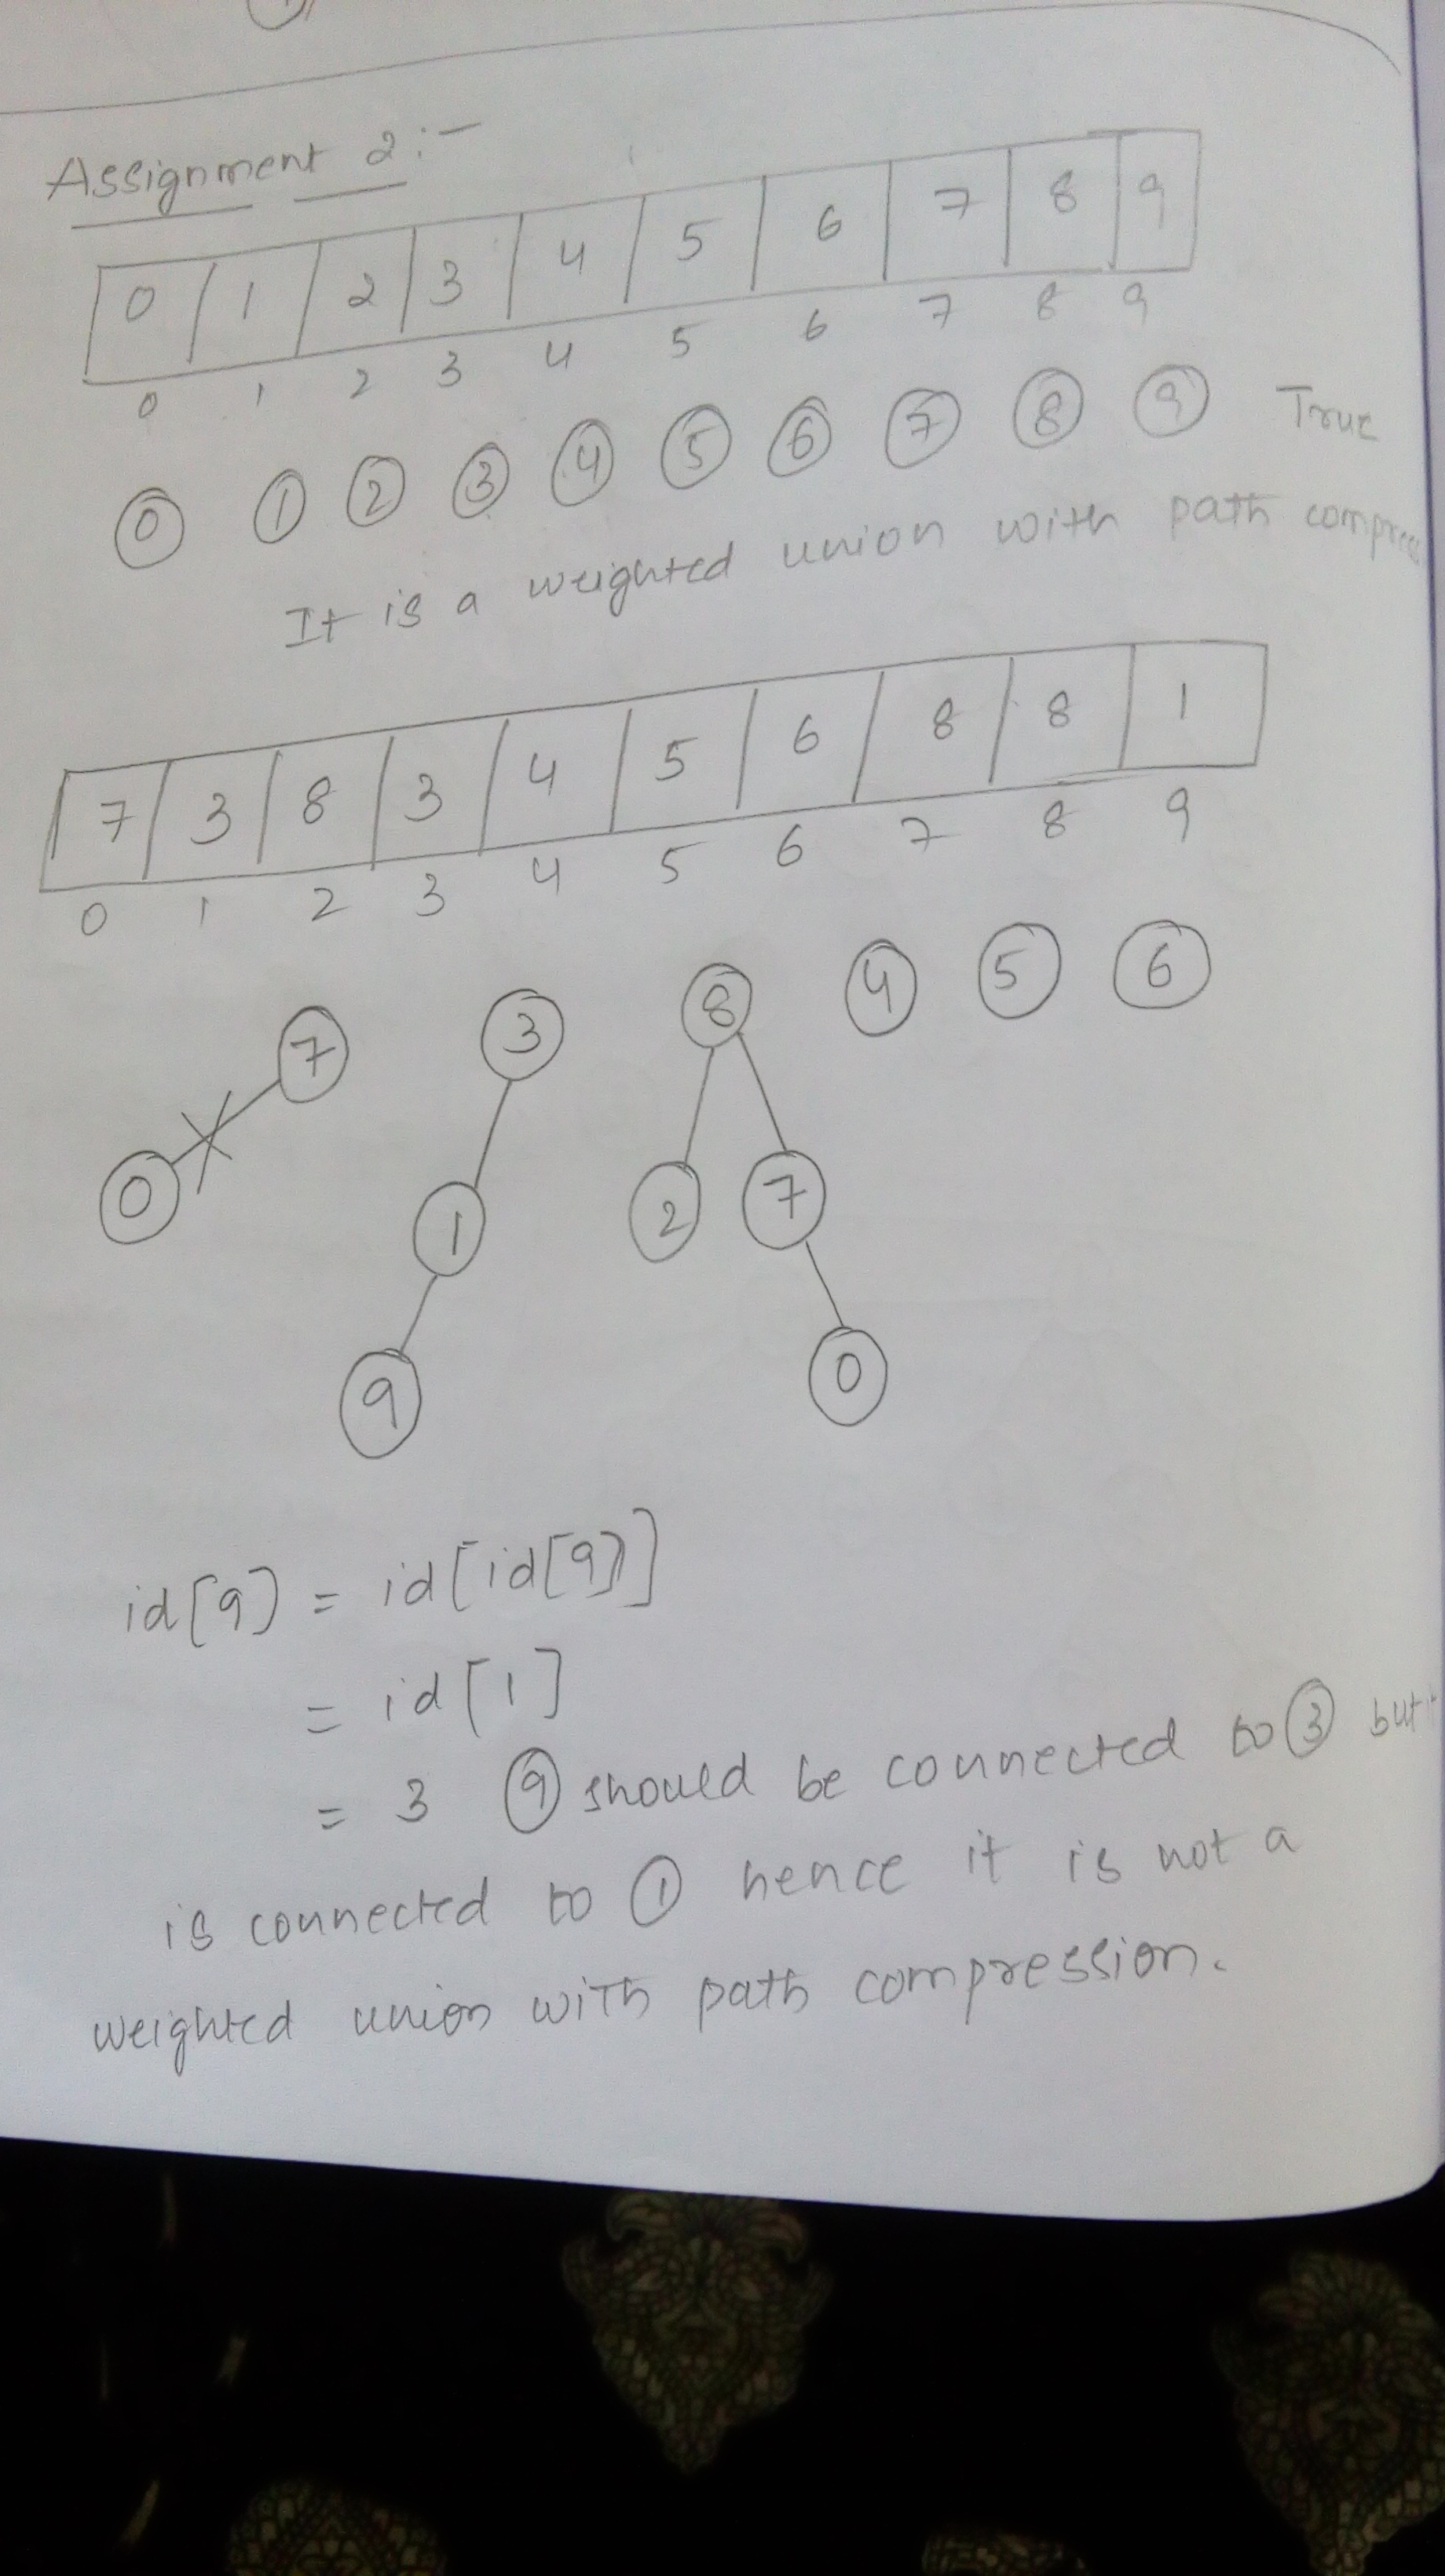 Assignment 2:-
0 1 2 3 4 5 6 7 8 9
0 1 2 3 4 5 6 7 8 9
0 1 2 3 4 5 6 7 8 9 True
It is a weighted union with path
7 3 8 3 4 5 6 8 8 1
0 1 2 3 4 5 6 7 8 9
7 3 8 4 5 6
0 1 2 7
9 0
id[9] = id[id[9]]
= id[1]
= 3 9 should be connected to 3 but
is connected to 1 hence it is not a
weighted union with path compression.